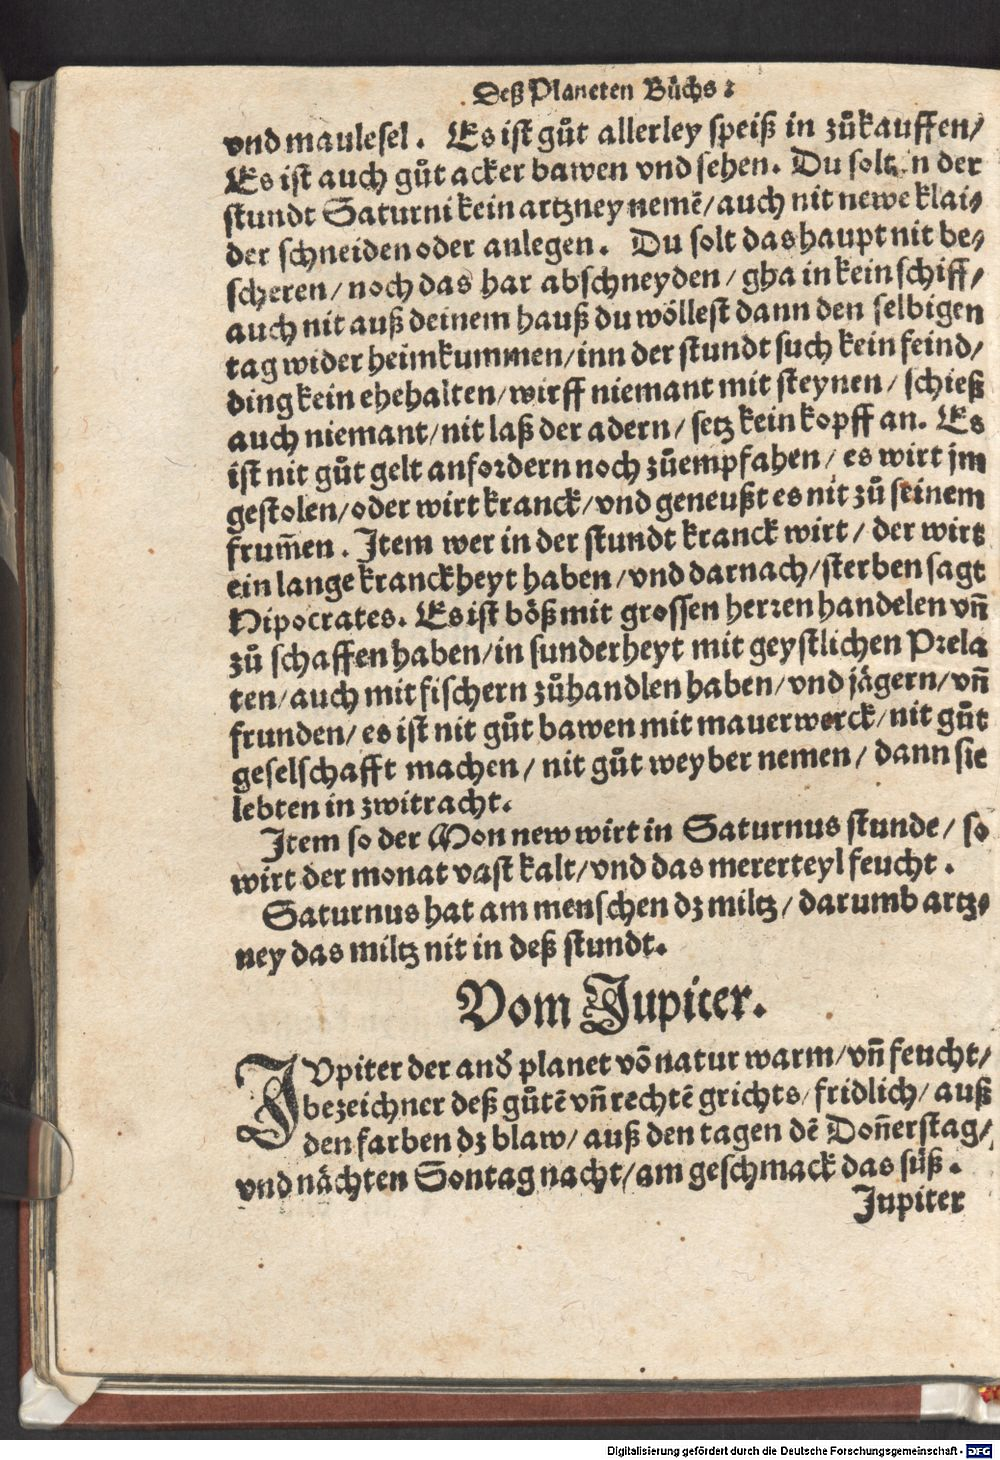 Deß Planeten Bůchs:
vnd maulesel. Es ist gůt allerley speiß in zůkauffen/
Es ist auch gůt acker bawen vnd sehen. Du solt in der
stundt Saturni kein artzney nemẽ/auch nit newe klai⸗
der schneiden oder anlegen. Du solt das haupt nit be⸗
scheren/ noch das har abschneyden/ gha in kein schiff/
auch nit auß deinem hauß du wöllest dann den selbigen
tag wider heimkummen/inn der stundt such kein feind/
ding kein ehehalten/wirff niemant mit steynen/ schieß
auch niemant/nit laß der adern/ setz kein kopff an. Es
ist nit gůt gelt anfordern noch zůempfahen/ es wirt jm
gestolen/oder wirt kranck/vnd geneußt es nit zů seinem
frum̃en. Item wer in der stundt kranck wirt/ der wirt
ein lange kranckheyt haben/vnd darnach/sterben sagt
Hipocrates. Es ist böß mit grossen herren handelen vñ
zů schaffen haben/in sunderheyt mit geystlichen Prela
ten/auch mit fischern zůhandlen haben/vnd jägern/vñ
frunden/ es ist nit gůt bawen mit mauerwerck/nit gůt
geselschafft machen/ nit gůt weyber nemen/ dann sie
lebten in zwitracht.
Item so der Mon new wirt in Saturnus stunde/ so
wirt der monat vast kalt/vnd das mererteyl feucht.
Saturnus hat am menschen dz miltz/ darumb artz⸗
ney das miltz nit in deß stundt.
Vom Jupiter.
JVpiter der and̕ planet võ natur warm/vñ feucht/
bezeichner deß gůtẽ vñ rechtẽ grichts/ fridlich/ auß
den farben dz blaw/ auß den tagen dẽ Don̄erstag/
vnd nächten Sontag nacht/am geschmack das süß.
Jupiter
Digitalisierung gefördert durch die Deutsche Forschungsgemeinschaft - DFG